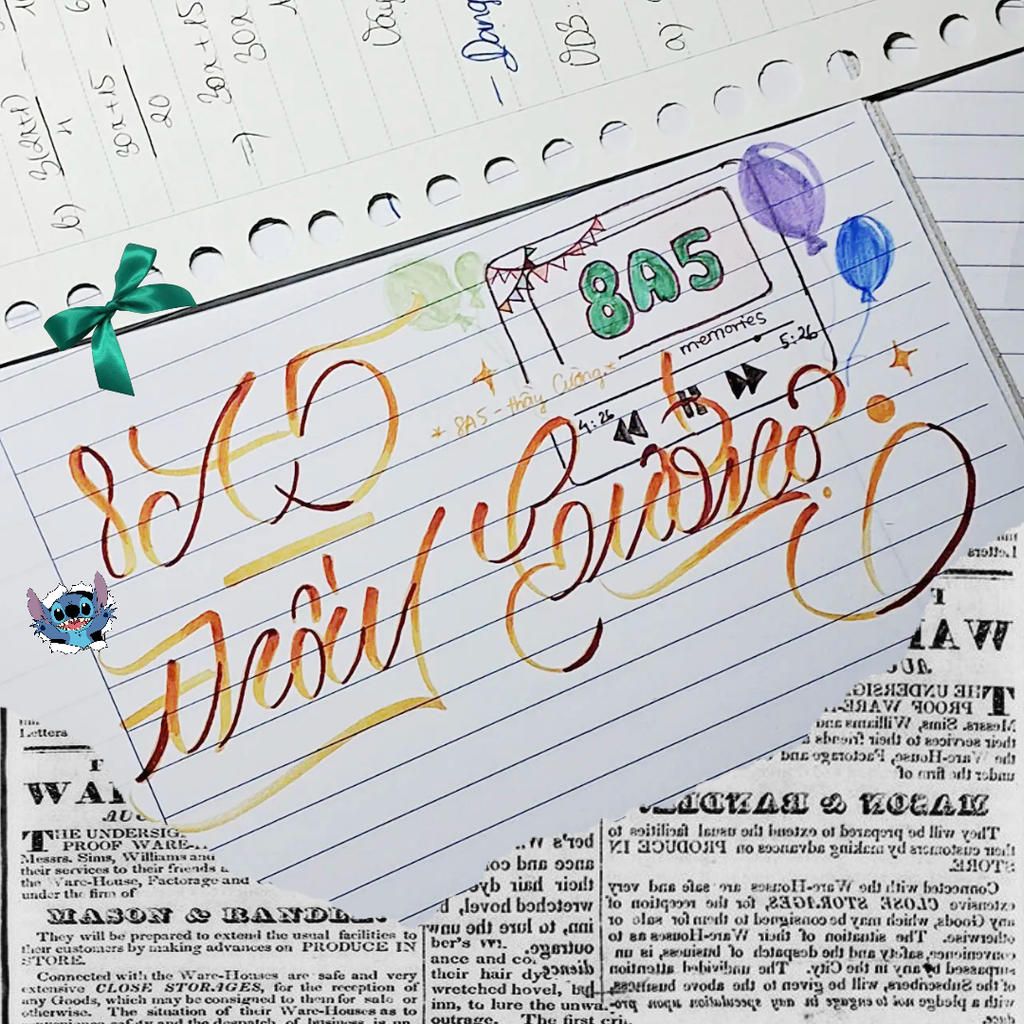 b) 3(2x+1)
4
30x+15
20
=> 30x+15
30x
Vậy
- Dạng
VD3:
a)
8A5
memories
4:26
5:26
* 8A5 - thầy Cường *
8A5
Thầy Cường
Letters
WA
AUC
THE UNDERSIG
PROOF WARE-H
Messrs. Sims, Williams and
their services to their friends a
the Ware-House, Factorage and
under the firm of
MASON & RANDLE.
They will be prepared to extend the usual facilities to
their customers by making advances on PRODUCE IN
STORE.
Connected with the Ware-Houses are safe and very
extensive CLOSE STORAGES, for the reception of
any Goods, which may be consigned to them for sale or
otherwise. The situation of their Ware-Houses as to
ber's w
ance and co
their hair dy
wretched hovel,
inn, to lure the unwa
outrage. The first cri
Letters
WA
AUC
THE UNDERSIG
PROOF WARE-H
Messrs. Sims, Williams and
their services to their friends a
the Ware-House, Factorage and
under the firm of
MASON & RANDLE.
They will be prepared to extend the usual facilities to
their customers by making advances on PRODUCE IN
STORE.
Connected with the Ware-Houses are safe and very
extensive CLOSE STORAGES, for the reception of
any Goods, which may be consigned to them for sale or
otherwise. The situation of their Ware-Houses as to
convenience, safety and the despatch of business, is un
surpassed by any in the City. The undivided attention
of the Subscribers, will be given to the above business,
with a pledge not to engage in any speculation upon pro-
duce.
ber's w
ance and co
their hair dy
wretched hovel, b
inn, to lure the unw
outrage.